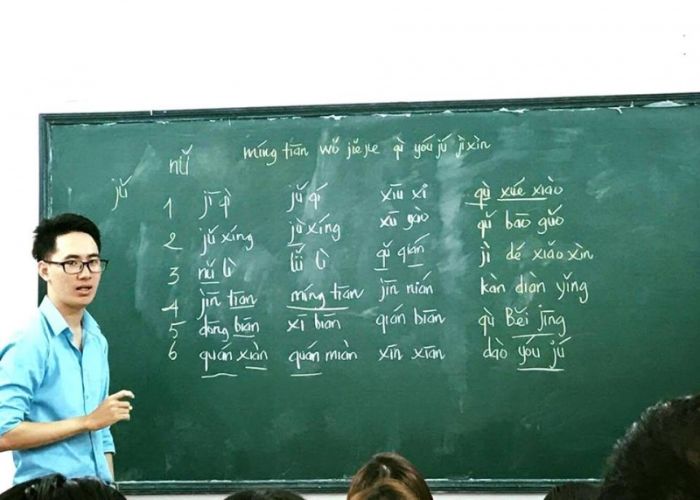 nǚ
míng tiān wǒ jiějie qù yóu jú jì xìn
jǔ
1 jī qì jǔ qí xiū xi qù xué xiào
2 jǔ xíng jù xíng xū yào qǔ bāo guǒ
3 nǔ lì lǜ lì qǔ qián jì dé xiǎo xìn
4 jīn tiān míng tiān jīn nián kàn diàn yǐng
5 dōng biān xī biān qián biān qù Běi jīng
6 quán xiàn quán miàn xīn xiān dào yóu jú